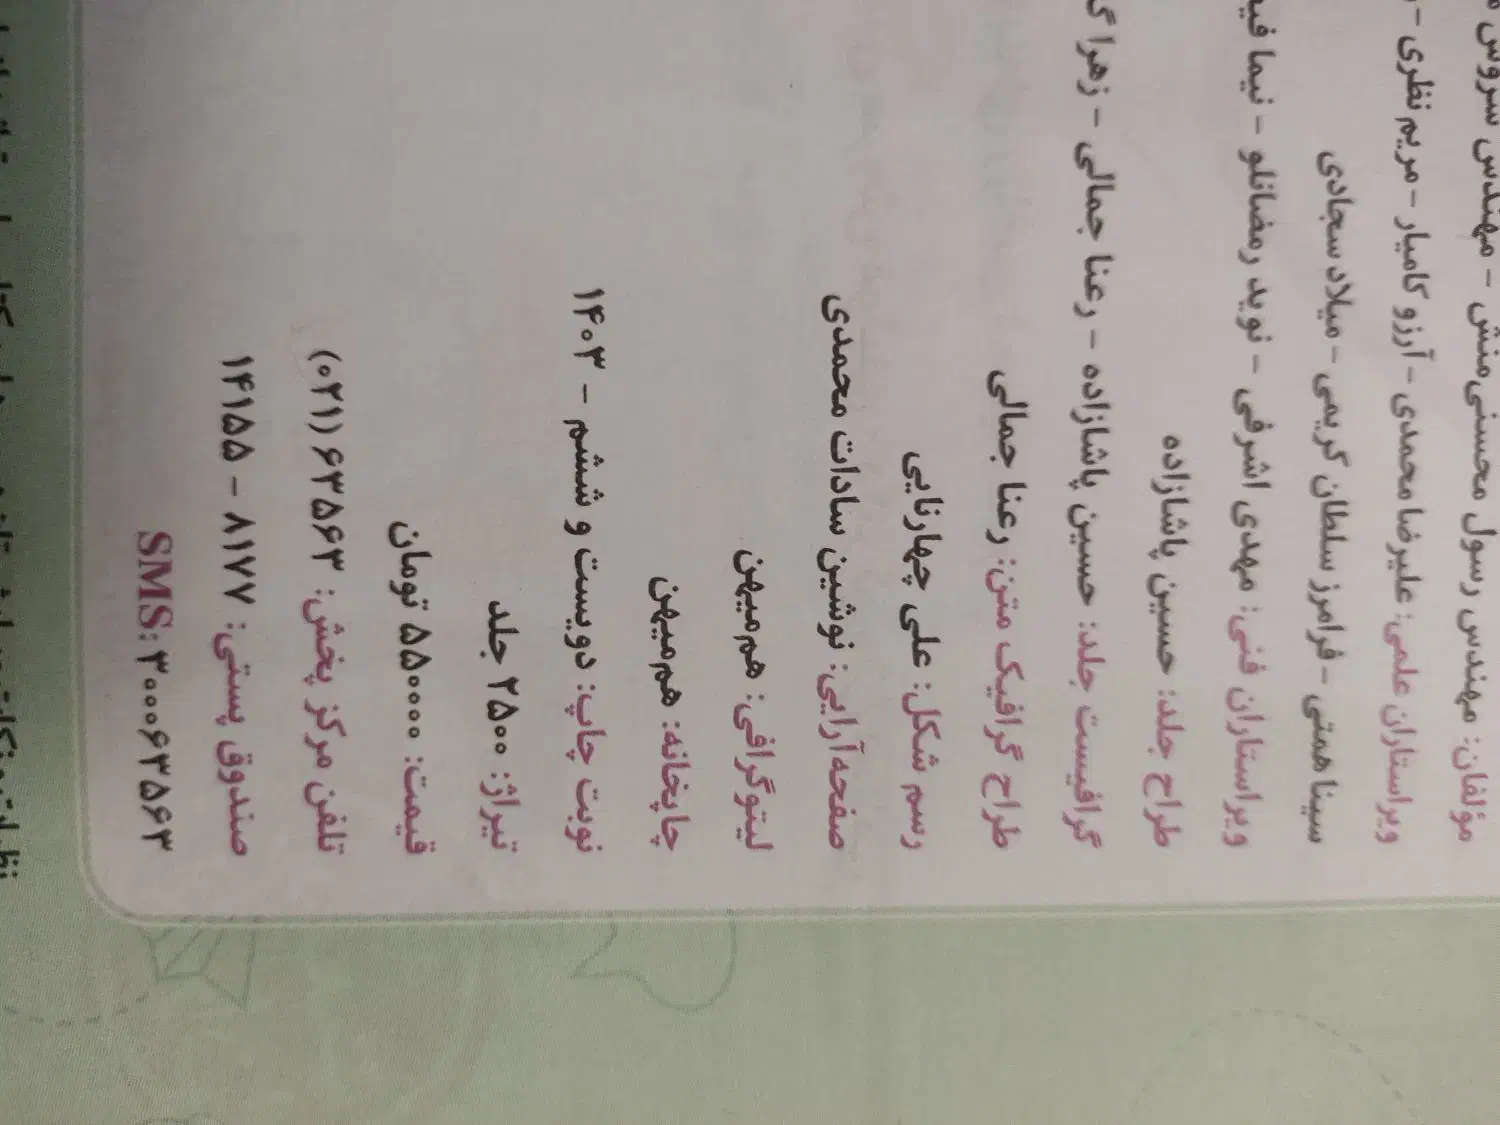 مؤلفان: مهندس رسول محسنی‌منش - مهندس سروش
ویراستاران علمی: علیرضا محمدی - آرزو کامیار - مریم نظری -
سینا همتی - فرامرز سلطان کریمی - میلاد سجادی
ویراستاران فنی: مهدی اشرفی - نوید رمضانلو - نیما
طراح جلد: حسین پاشازاده
گرافیست جلد: حسین پاشازاده - رعنا جمالی - زهرا
طراح گرافیک متن: رعنا جمالی
رسم شکل: علی چهارتایی
صفحه‌آرایی: نوشین سادات محمدی
لیتوگرافی: هم‌میهن
چاپخانه: هم‌میهن
نوبت چاپ: دویست و ششم - ۱۴۰۳
تیراژ: ۲۵۰۰ جلد
قیمت: ۵۵۰۰۰۰ تومان
تلفن مرکز پخش: ۶۳۵۶۳ (۰۲۱)
صندوق پستی: ۸۱۷۷ - ۱۴۱۵۵
SMS: ۳۰۰۰۶۳۵۶۳